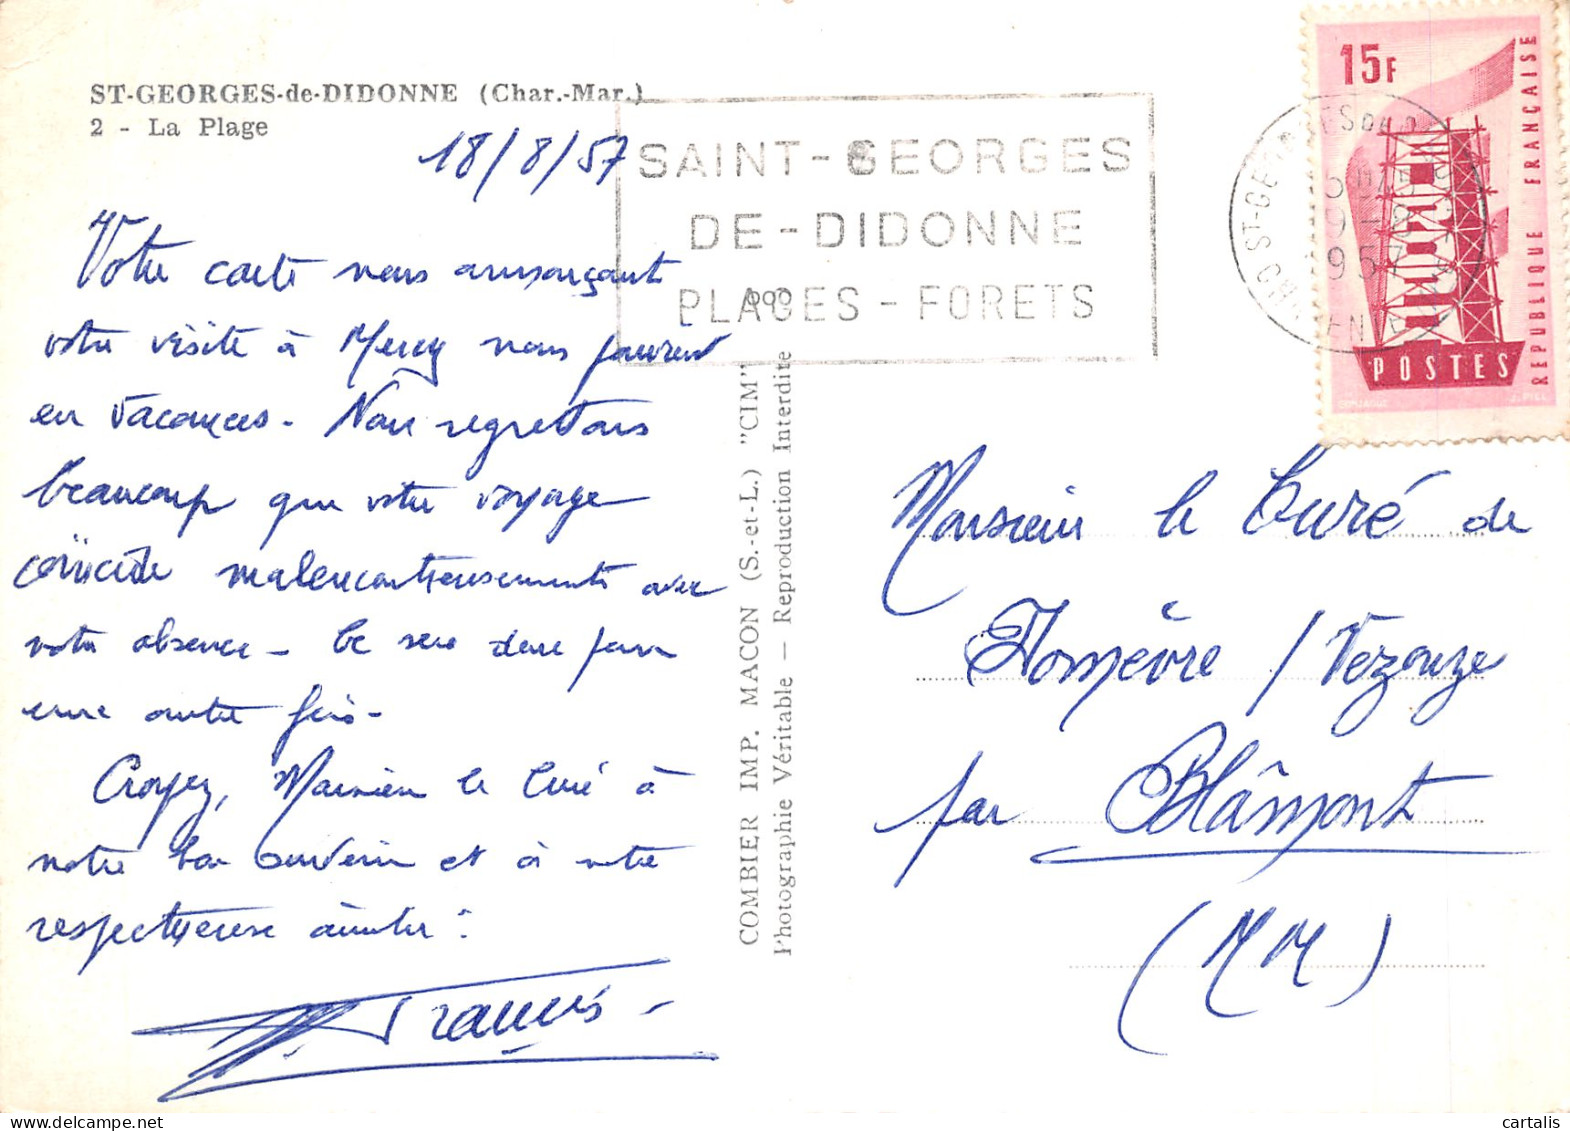 ST-GEORGES-de-DIDONNE (Char.-Mar.)
2 - La Plage
18/8/57
Votre carte nous annonçant
votre visite à Mercy nous parvient
en vacances - Nous regrettons
beaucoup que votre voyage
coïncide malencontreusement avec
notre absence - Ce sera donc pour
une autre fois -
Croyez, Monsieur le Curé à
notre bon souvenir et à notre
respectueuse amitié.
François
SAINT-GEORGES
DE-DIDONNE
PLAGES-FORETS
COMBIER IMP. MACON (S.-et-L.) "CIM"
Photographie Véritable — Reproduction Interdite
15F
REPUBLIQUE FRANÇAISE
POSTES
Monsieur le Curé de
Domèvre / Vezouze
par Blâmont
(M M)
cartalis